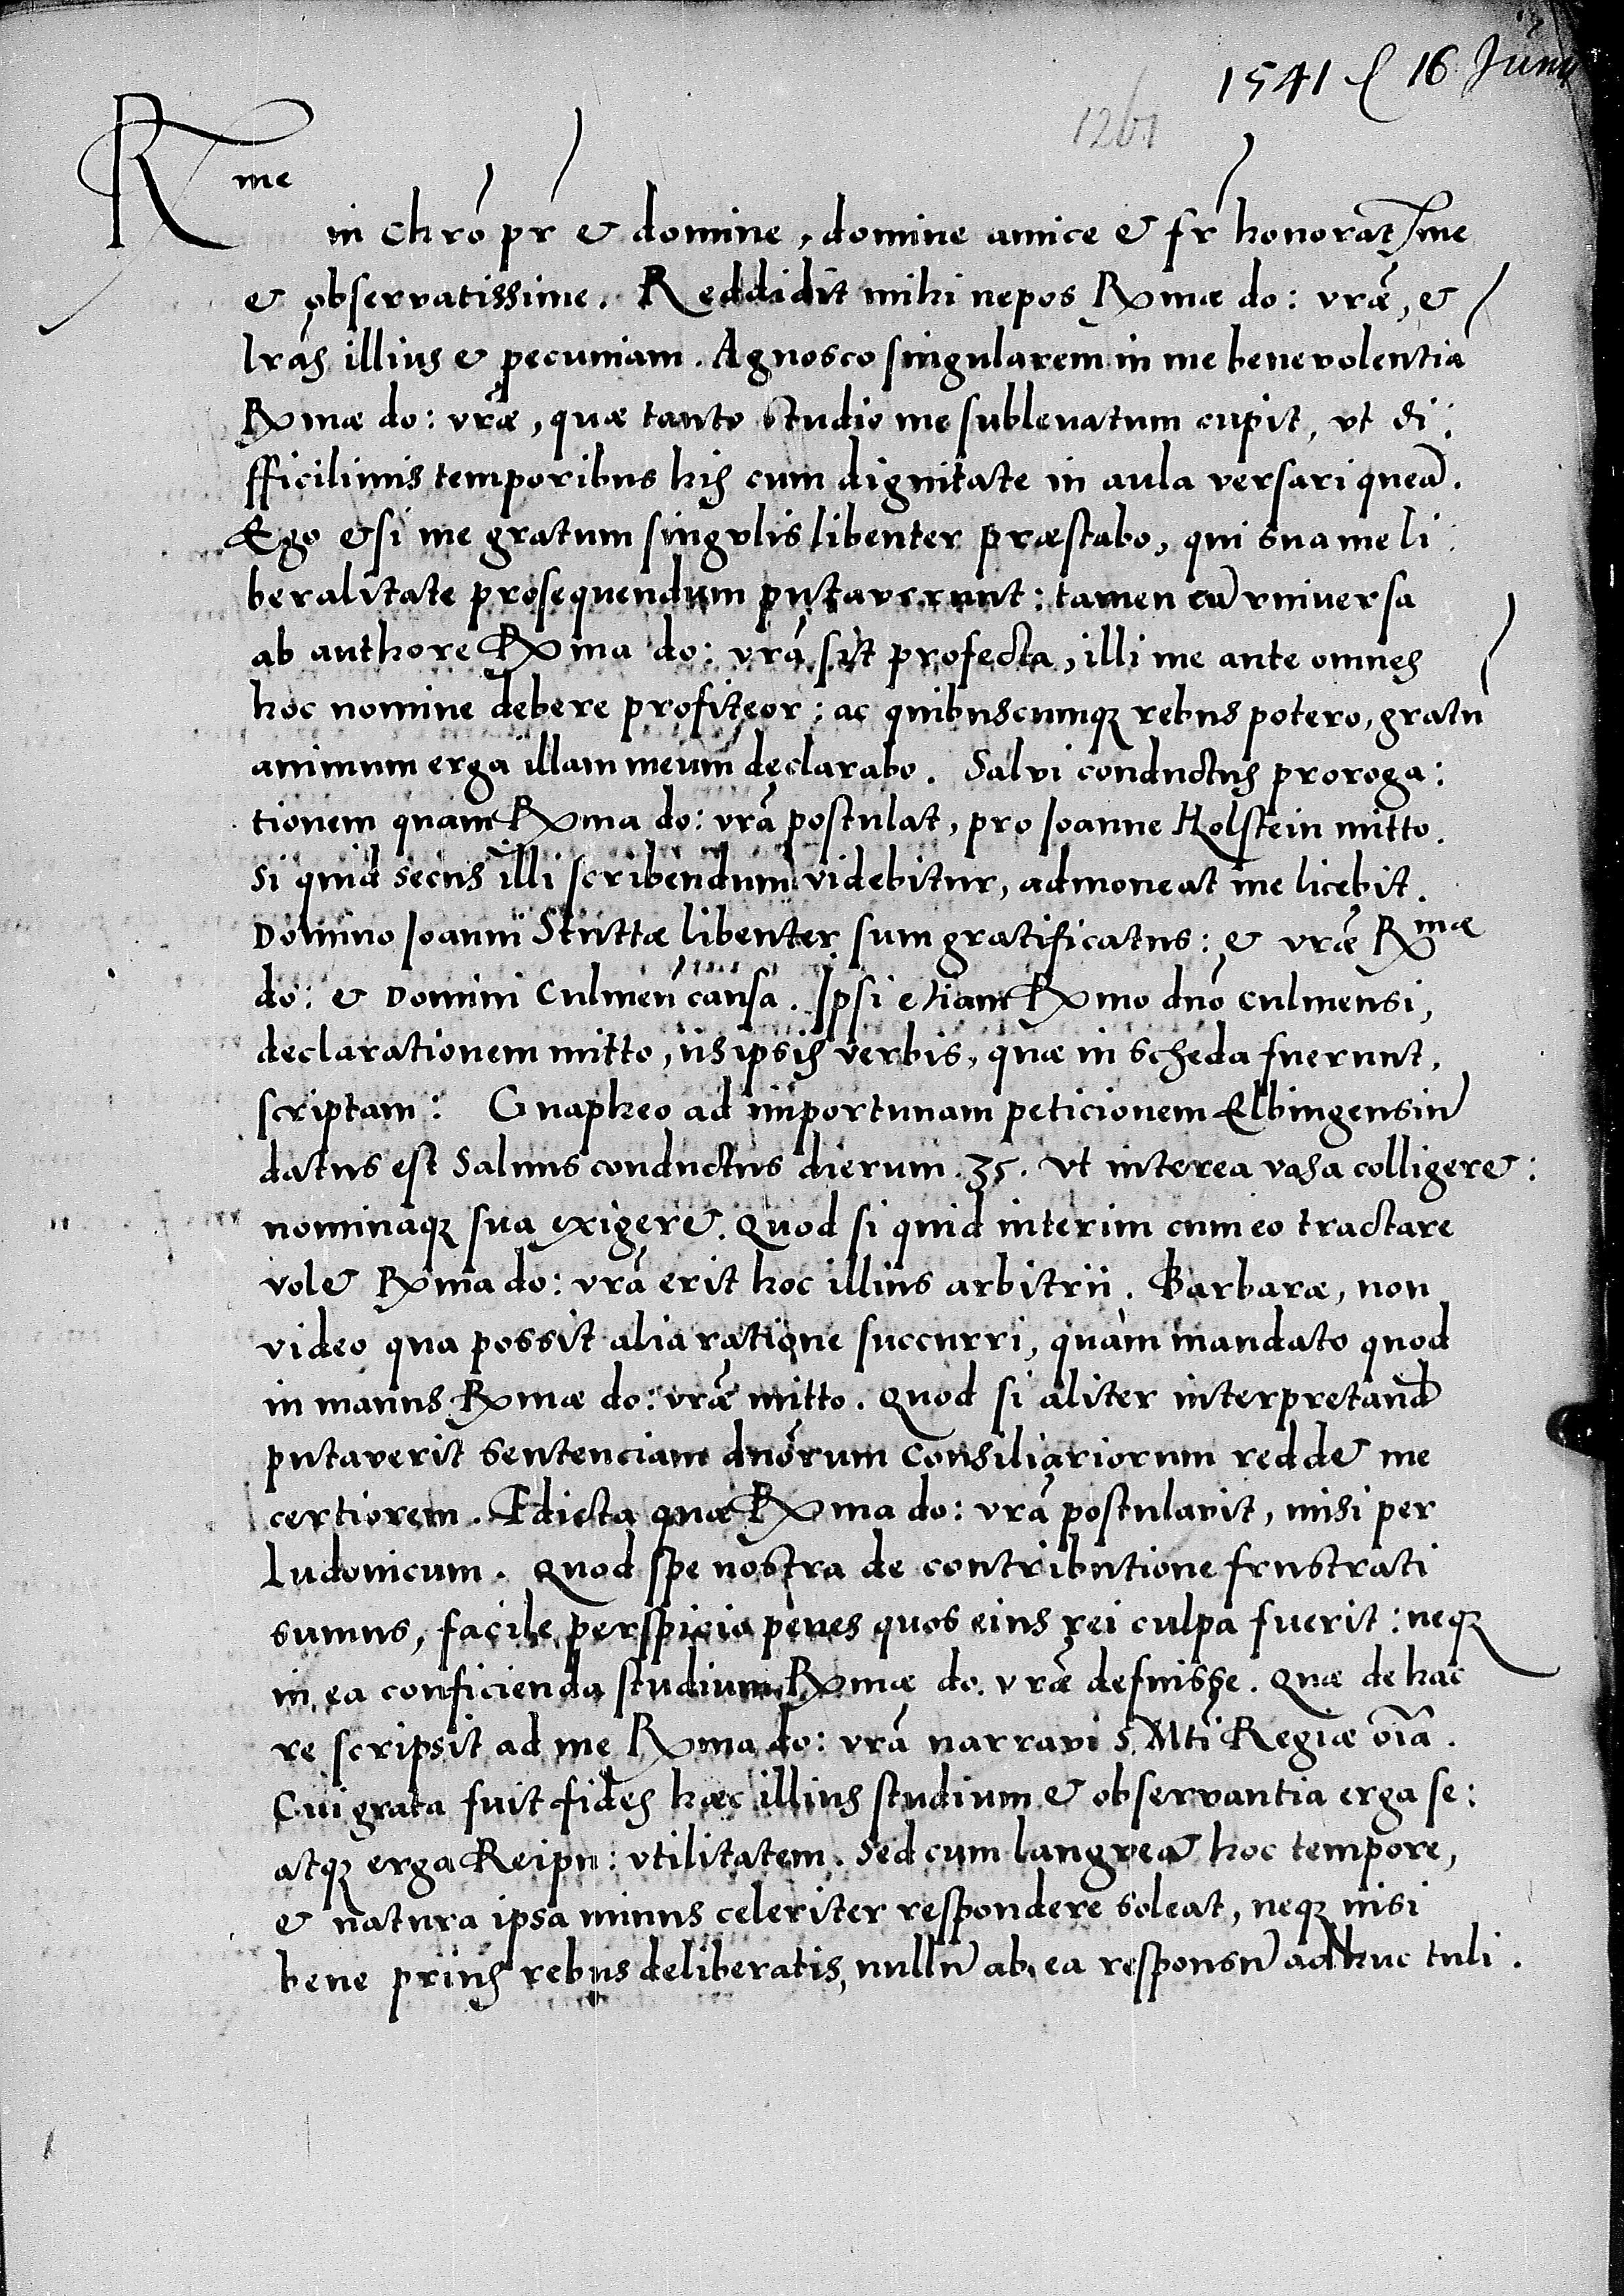 1541 16 Junij
1261
Rme
in chrō pr̄ & domine, domine amice & fr̄ honoratssme
& observatissime. Reddidit mihi nepos Rmæ do: vrǣ, &
lrās illius & pecuniam. Agnosco singularem in me benevolentiā
Rmæ do: vrǣ, quæ tanto studio me sublevatum cupit, vt di:
fficilimis temporibus his cum dignitate in aula versari queā.
Ego etsi me gratum singulis libenter præstabo, qui sua me li:
beralitate prosequendum putaverunt: tamen cū vniversa
ab authore Rma do: vrā sit profecta, illi me ante omnes
hoc nomine debere profiteor: ac quibuscumq₃ rebus potero, gratū
animum erga illam meum declarabo. Salvi conductus proroga:
tionem quam Rma do: vrā postulat, pro Ioanne Holstein mitto.
Si quid secus illi scribendum videbitur, admoneat me licebit.
Domino Ioanni Stuttæ libenter sum gratificatus: & vrǣ Rmæ
do: & Domini Culmeñ causa. Ipsi etiam Rmo dnō Culmensi,
declarationem mitto, iis ipsis verbis, quæ in scheda fuerunt,
scriptam: Gnapheo ad importunam peticionem Elbingensiū
datus est Salvus conductus dierum 35. vt interea vasa colligeret:
nominaq₃ sua exigeret. Quod si quid interim cum eo tractare
volet Rma do: vrā erit hoc illius arbitrii. Barbaræ, non
video qua possit alia ratione succurri, quàm mandato quod
in manus Rmæ do: vrǣ mitto. Quod si aliter interpretandā
putaverit sentenciam dnōrum Consiliariorum reddet me
certiorem. Edicta quæ Rma do: vrā postulavit, misi per
Ludovicum. Quod spe nostra de contributione frustrati
sumus, facile perspicio penes quos eius rei culpa fuerit: neq₃
in ea conficienda studium Rmæ do. vrǣ defuisse. Quæ de hac
re scripsit ad me Rma do: vrā narravi S. Mti Regiæ oīa.
Cui grata fuit fides hæc illius studium & observantia erga se:
atq₃ erga Reipu: vtilitatem. Sed cum langveat hoc tempore,
& natura ipsa minus celeriter respondere soleat, neq₃ nisi
bene prius rebus deliberatis, nullū ab ea responsū adhuc tuli.